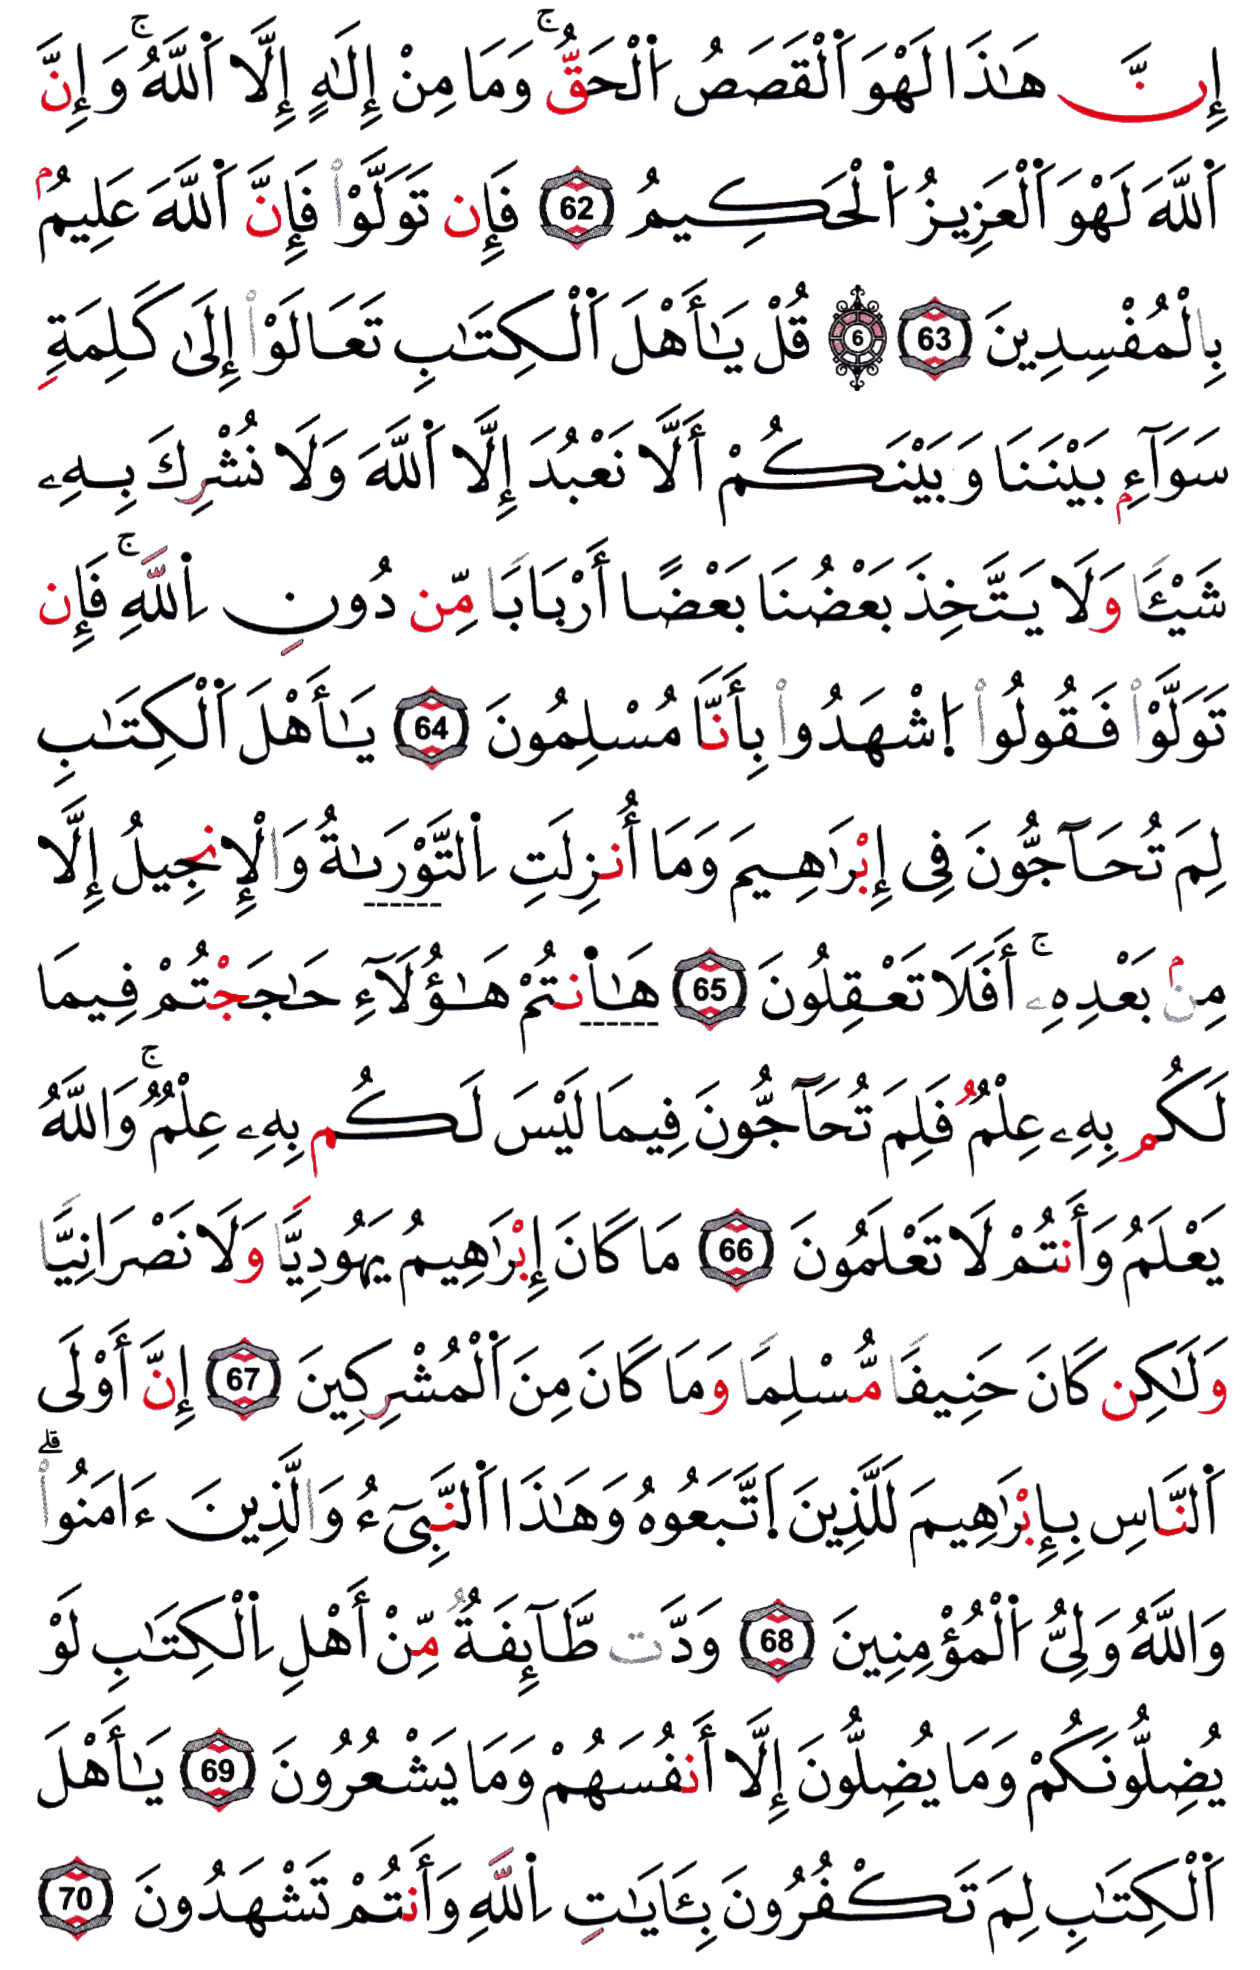 إِنَّ هَٰذَا لَهْوَ اَ۬لْقَصَصُ اُ۬لْحَقُّۚ وَمَا مِنْ إِلَٰهٍ إِلَّا اَ۬للَّهُۚ وَإِنَّ
اَ۬للَّهَ لَهْوَ اَ۬لْعَزِيزُ اُ۬لْحَكِيمُ 62 فَإِن تَوَلَّوْاْ فَإِنَّ اَ۬للَّهَ عَلِيمُۢ
بِالْمُفْسِدِينَ 63 6 قُلْ يَٰأَهْلَ اَ۬لْكِتَٰبِ تَعَالَوْاْ إِلَىٰ كَلِمَةِ
سَوَآءِۢ بَيْنَنَا وَبَيْنَكُمْ أَلَّا نَعْبُدَ إِلَّا اَ۬للَّهَ وَلَا نُشْرِكَ بِهِۦ
شَيْـًٔا وَلَا يَتَّخِذَ بَعْضُنَا بَعْضًا أَرْبَابًا مِّن دُونِ اِ۬للَّهِۚ فَإِن
تَوَلَّوْاْ فَقُولُواْ اُ۪شْهَدُواْ بِأَنَّا مُسْلِمُونَ 64 يَٰأَهْلَ اَ۬لْكِتَٰبِ
لِمَ تُحَآجُّونَ فِى إِبْرَٰهِيمَ وَمَا أُنزِلَتِ اِ۬لتَّوْرَىٰةُ وَالْإِنجِيلُ إِلَّا
مِنۢ بَعْدِهِۦۚ أَفَلَا تَعْقِلُونَ 65 هَٰا۬نتُمْ هَٰؤُلَآءِ حَٰجَجْتُمْ فِيمَا
لَكُم بِهِۦ عِلْمٌ فَلِمَ تُحَآجُّونَ فِيمَا لَيْسَ لَكُم بِهِۦ عِلْمٌۚ وَاللَّهُ
يَعْلَمُ وَأَنتُمْ لَا تَعْلَمُونَ 66 مَا كَانَ إِبْرَٰهِيمُ يَهُودِيًّا وَلَا نَصْرَانِيًّا
وَلَٰكِن كَانَ حَنِيفًا مُّسْلِمًا وَمَا كَانَ مِنَ اَ۬لْمُشْرِكِينَ 67 إِنَّ أَوْلَى
اَ۬لنَّاسِ بِإِبْرَٰهِيمَ لَلَّذِينَ اَ۪تَّبَعُوهُ وَهَٰذَا اَ۬لنَّبِىٓءُ وَالَّذِينَ ءَامَنُواْۗ
وَاللَّهُ وَلِىُّ اُ۬لْمُؤْمِنِينَ 68 وَدَّت طَّآئِفَةٌ مِّنْ أَهْلِ اِ۬لْكِتَٰبِ لَوْ
يُضِلُّونَكُمْ وَمَا يُضِلُّونَ إِلَّا أَنفُسَهُمْ وَمَا يَشْعُرُونَ 69 يَٰأَهْلَ
اَ۬لْكِتَٰبِ لِمَ تَكْفُرُونَ بِـَٔايَٰتِ اِ۬للَّهِ وَأَنتُمْ تَشْهَدُونَ 70